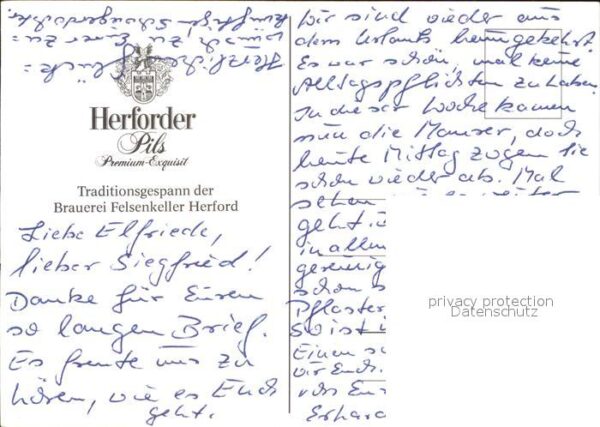 Herforder
Pils
Premium-Exquisit
Traditionsgespann der
Brauerei Felsenkeller Herford
Liebe Elfriede,
lieber Siegfried!
Danke für Euren
so langen Brief.
Es freute uns zu
hören, wie es Euch
geht.
Wir sind wieder aus
dem Urlaub heimgekehrt.
Es war schön, mal keine
Alltagspflichten zu haben.
In dieser Woche kamen
nun die Maurer, doch
heute Mittag zogen sie
schon wieder ab. Mal
sehen
geht
in allen
schon
Pflaster
So ist
Einen
wir Euch
Erhard
Herzliche Glück=
wünsche zu Eurer zu=
künftige Schwiegertochter
privacy protection
Datenschutz